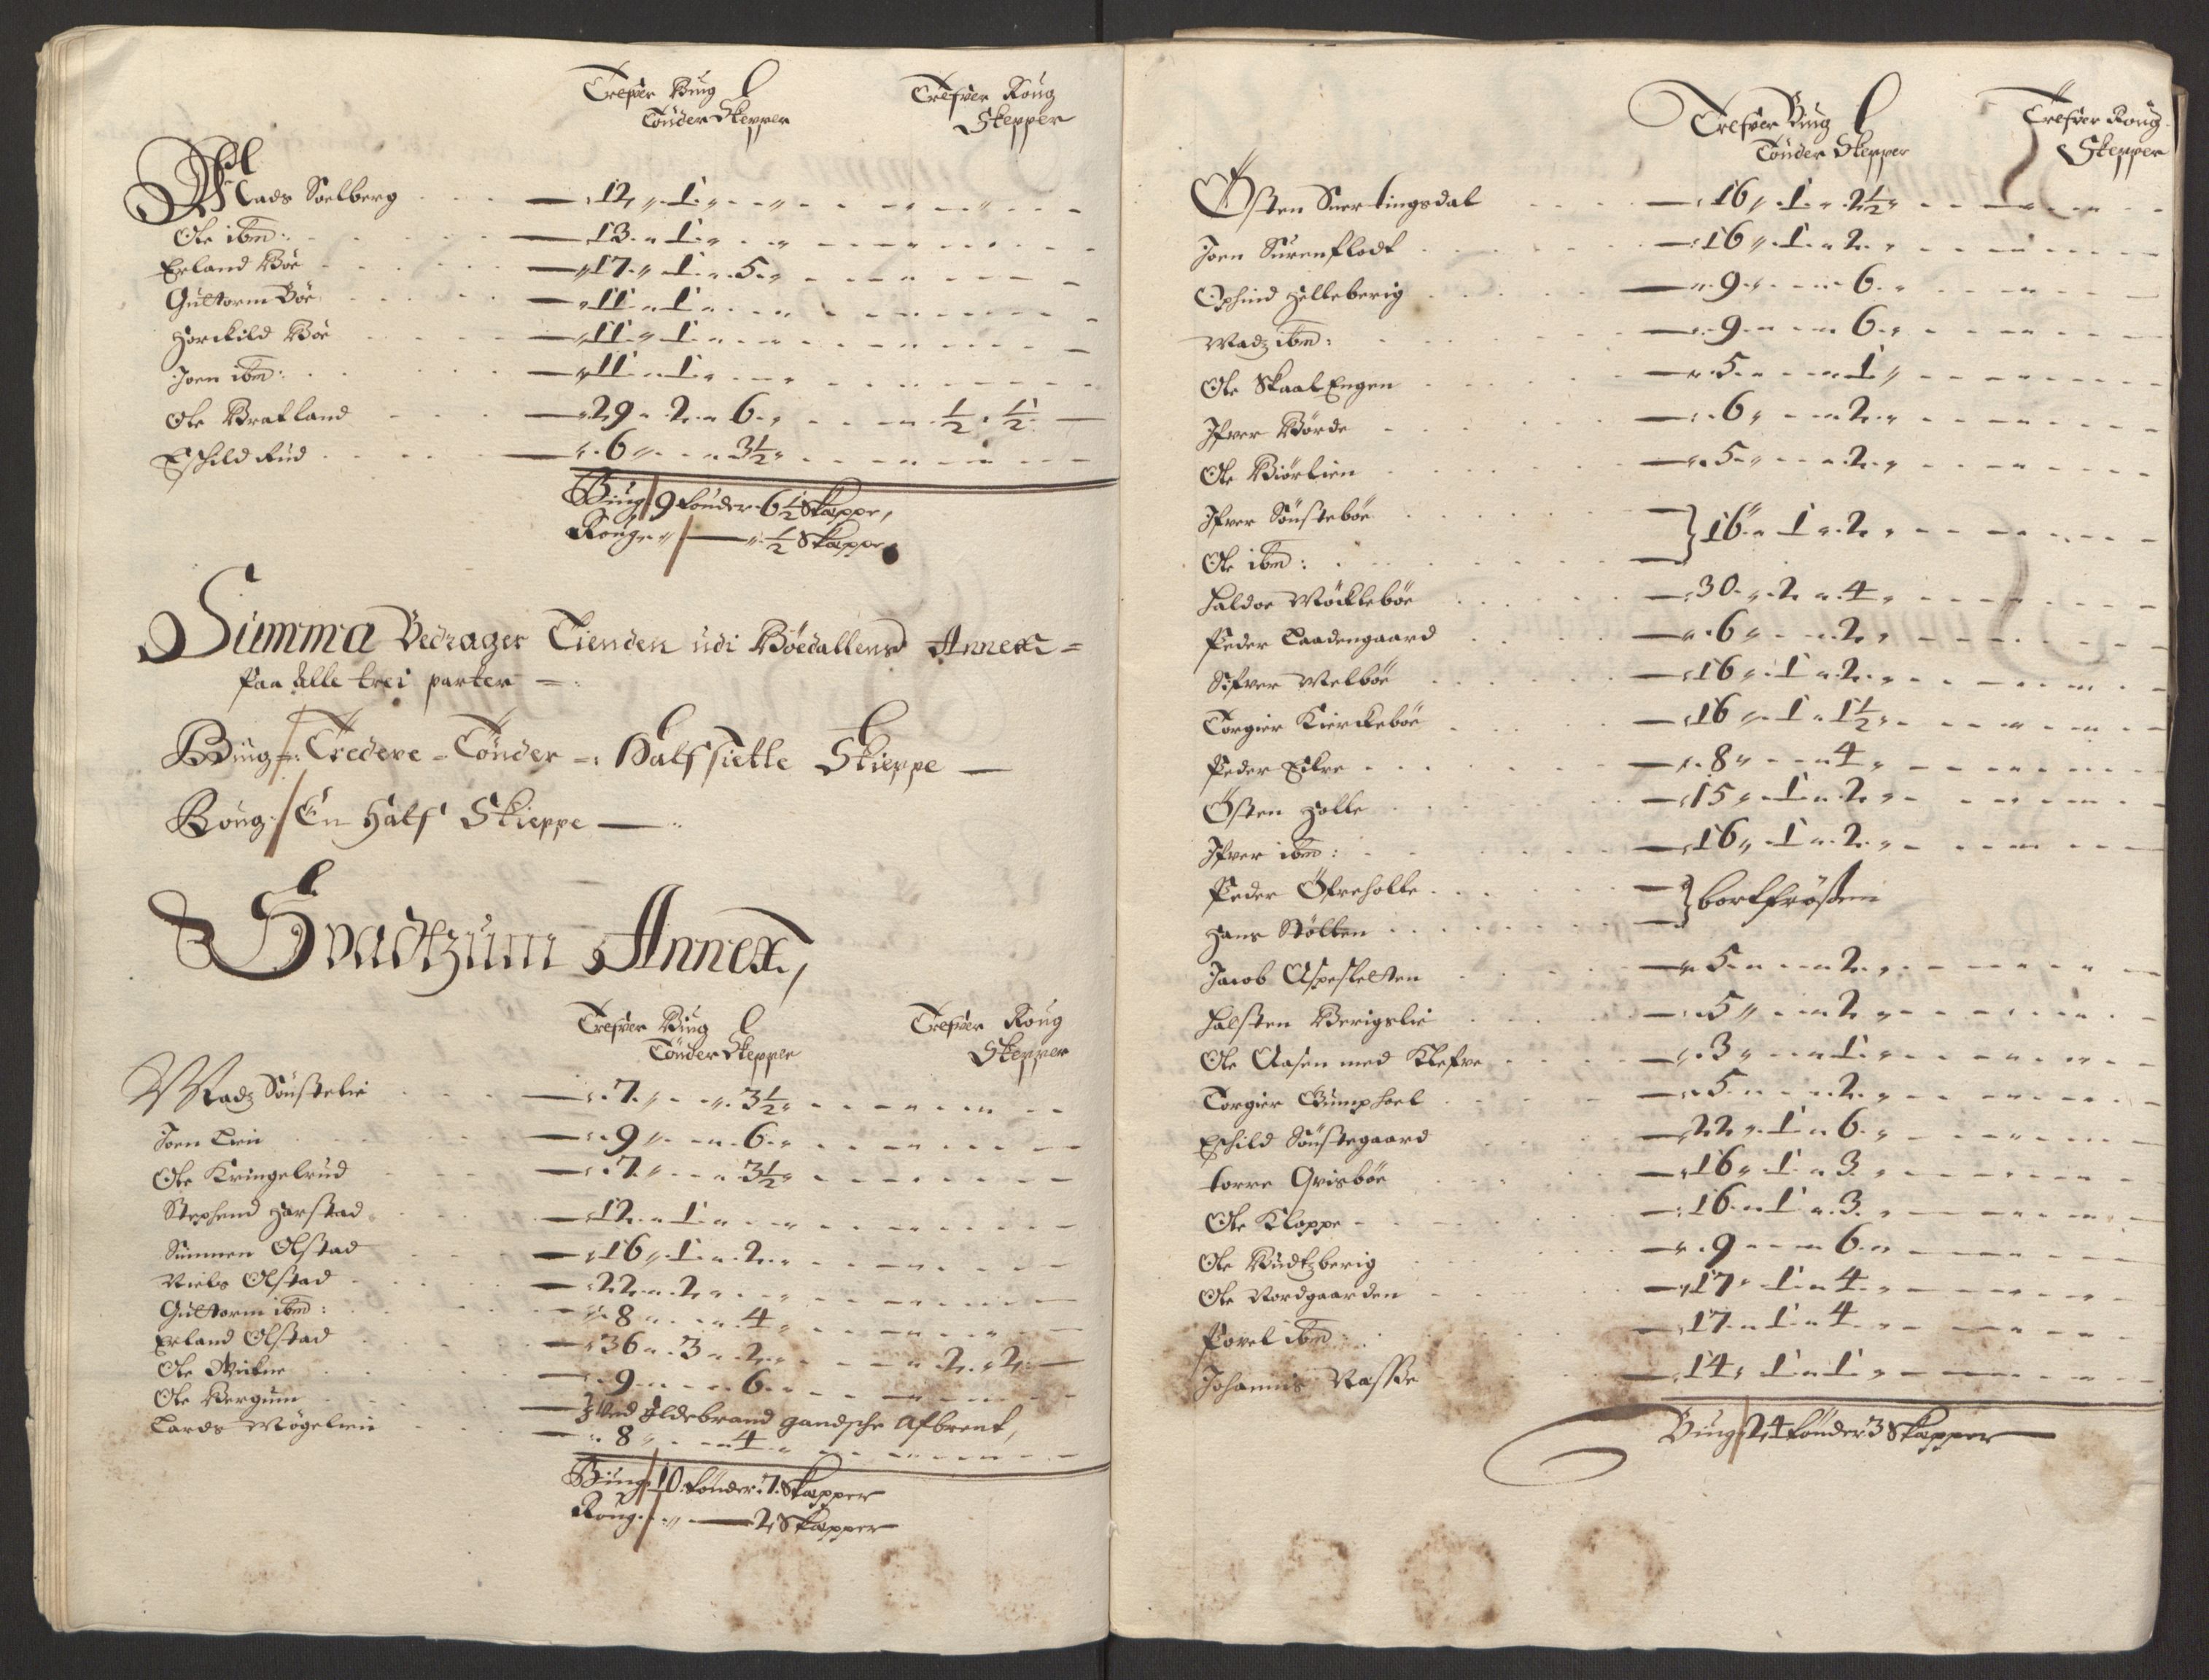 Trefver Biug
Tönder Skepper
Trefver Roug
Skepper
Mads Soelberg 12 1
Ole ibm: 13 1
Erland Böe 17 1 5
Gultorm Böe 11 1
Torckild Böe 11 1
Joen ibm: 11 1
Ole Bratland 29 2 6 ½ ½
Eschild Rud 6 3½
Biug 9 tönder 6½ Skeppe,
Roug ½ Skeppe
Summa Bedrager Tienden udi Böedallens Annex
Paa alle trei parter
Biug Tredeve Tönder Half siette Skieppe
Roug En Half Skieppe
Svadtzum Annex,
Trefver Biug
Tönder Skepper
Trefver Roug
Skepper
Madz Söustelie 7 3½
Joen Lien 9 6
Ole Kringelrud 7 3½
Stephend Harstad 12 1
Simmen Olstad 16 1 2
Niels Olstad 22 2
Gultorm ibm: 8 4
Erland Olstad 36 3 2 2 2
Ole 9 6
Ole Bergum Ved Ildebrand gandsche Afbrent,
Lards Mögelien 8 4
Biug 10 tönder 7 Skepper
Roug 2 Skepper
Trefver Biug
Tönder Skepper
Trefver Roug
Skepper
Østen Suertingsdal 16 1 2½
Joen Surenflodt 16 1 2
Ophind Helleberig 9 6
Madz ibm: 9 6
Ole SkaalEngen 5 1
Ifver Börde 6 2
Ole Biörlien 5 2
Ifver Söusteböe
16 1 2
Ole ibm:
Haldoe Möckleböe 30 2 4
Peder Laadengaard 6 2
Sifver Melböe 16 1 2
Torgier Kierckeböe 16 1 1½
Peder Eilre 8 4
Østen Holle 15 1 2
Ifver ibm: 16 1 2
Peder Öfreholle
bortfrösen
Hans Stölten
Jacob Aspesletten 5 2
Halsten Berigslie 5 2
Ole Aasen med Klefve 3 1
Torgier Gumphoel 5 2
Eschild Söustegaard 22 1 6
torre Qvisböe 16 1 3
Ole Kloppe 16 1 3
Ole Budtzberig 9 6
Ole Nordgaarden 17 1 4
Povel ibm: 17 1 4
Johannis 14 1 1
Biug 24 tönder 3 Skepper